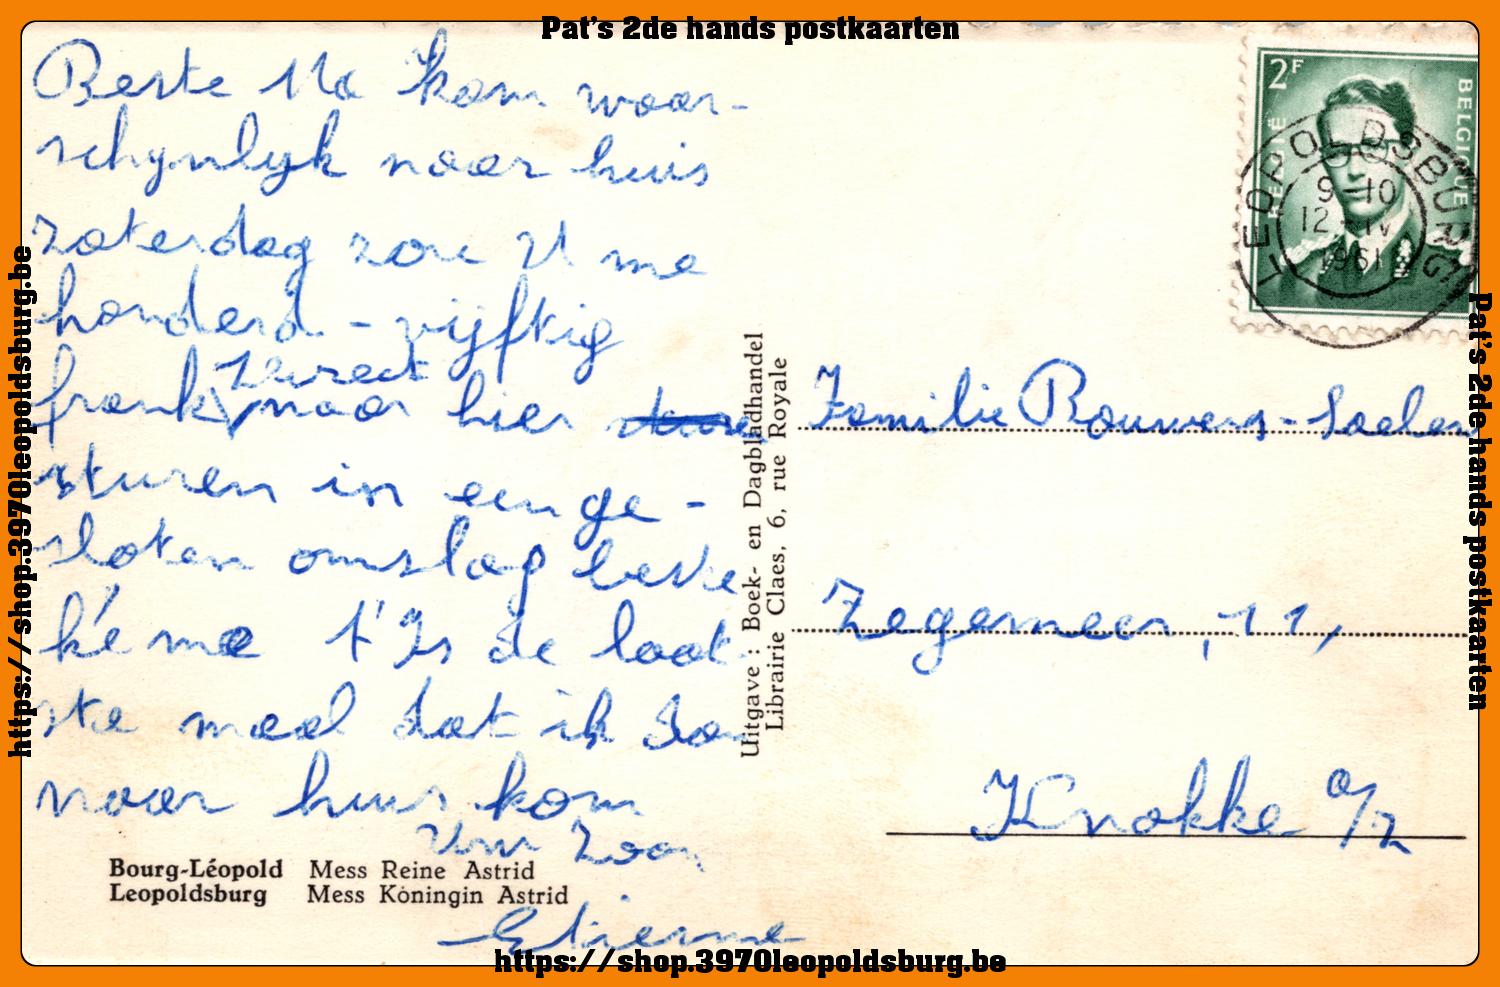 Pat's 2de hands postkaarten
Beste Ma kom waar-
schynlyk naar huis
zaterdag zou U me
honderd - vijftig
frank direct naar hier
sturen in een ge-
sloten omslag beste
ké me t'Is de laat-
ste maal dat ik
naar huis kom
Uw Zoon
Etienne
Bourg-Léopold Mess Reine Astrid
Leopoldsburg Mess Koningin Astrid
Uitgave : Boek- en Dagbladhandel
Librairie Claes, 6, rue Royale
2F
BELGIË
BELGIQUE
LEOPOLDSBURG
9-10
12-IV
1961
Familie Bouwens-Loelen
Zegemeer, 11,
Knokke a/z
https://shop.3970leopoldsburg.be
Pat's 2de hands postkaarten
https://shop.3970leopoldsburg.be